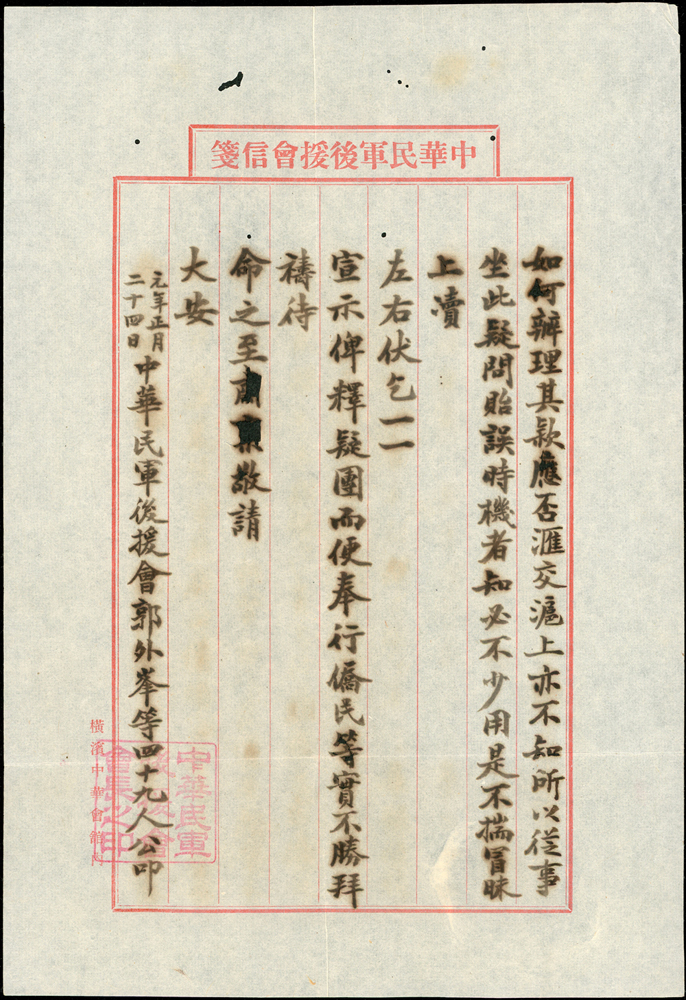 中華民軍後援會信箋
如何辦理其款應否滙交滬上亦不知所以從事
坐此疑問貽誤時機者知必不少用是不揣冒昧
上瀆
左右伏乞一一
宣示俾釋疑團而便奉行僑民等實不勝拜
禱待
命之至肅敬請
大安
元年正月
二十四日
中華民軍後援會郭外峯等四十九人公叩
中華民軍
後援會
會長之印
橫濱中華會館內